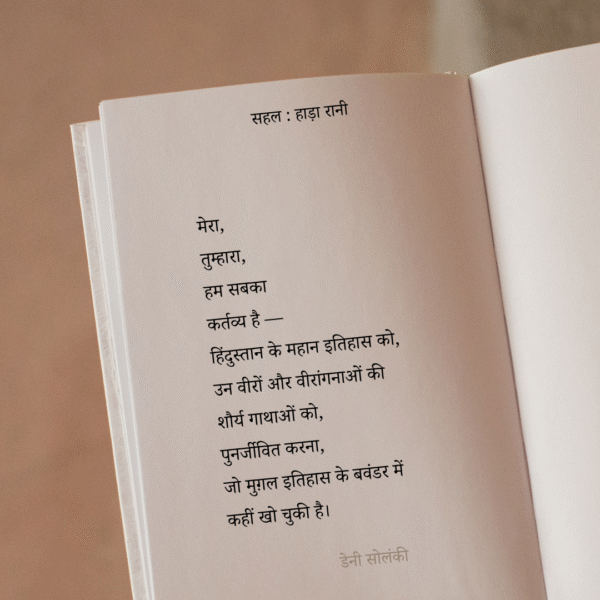 सहल : हाड़ा रानी
मेरा,
तुम्हारा,
हम सबका
कर्तव्य है —
हिंदुस्तान के महान इतिहास को,
उन वीरों और वीरांगनाओं की
शौर्य गाथाओं को,
पुनर्जीवित करना,
जो मुग़ल इतिहास के बवंडर में
कहीं खो चुकी है।
डेनी सोलंकी